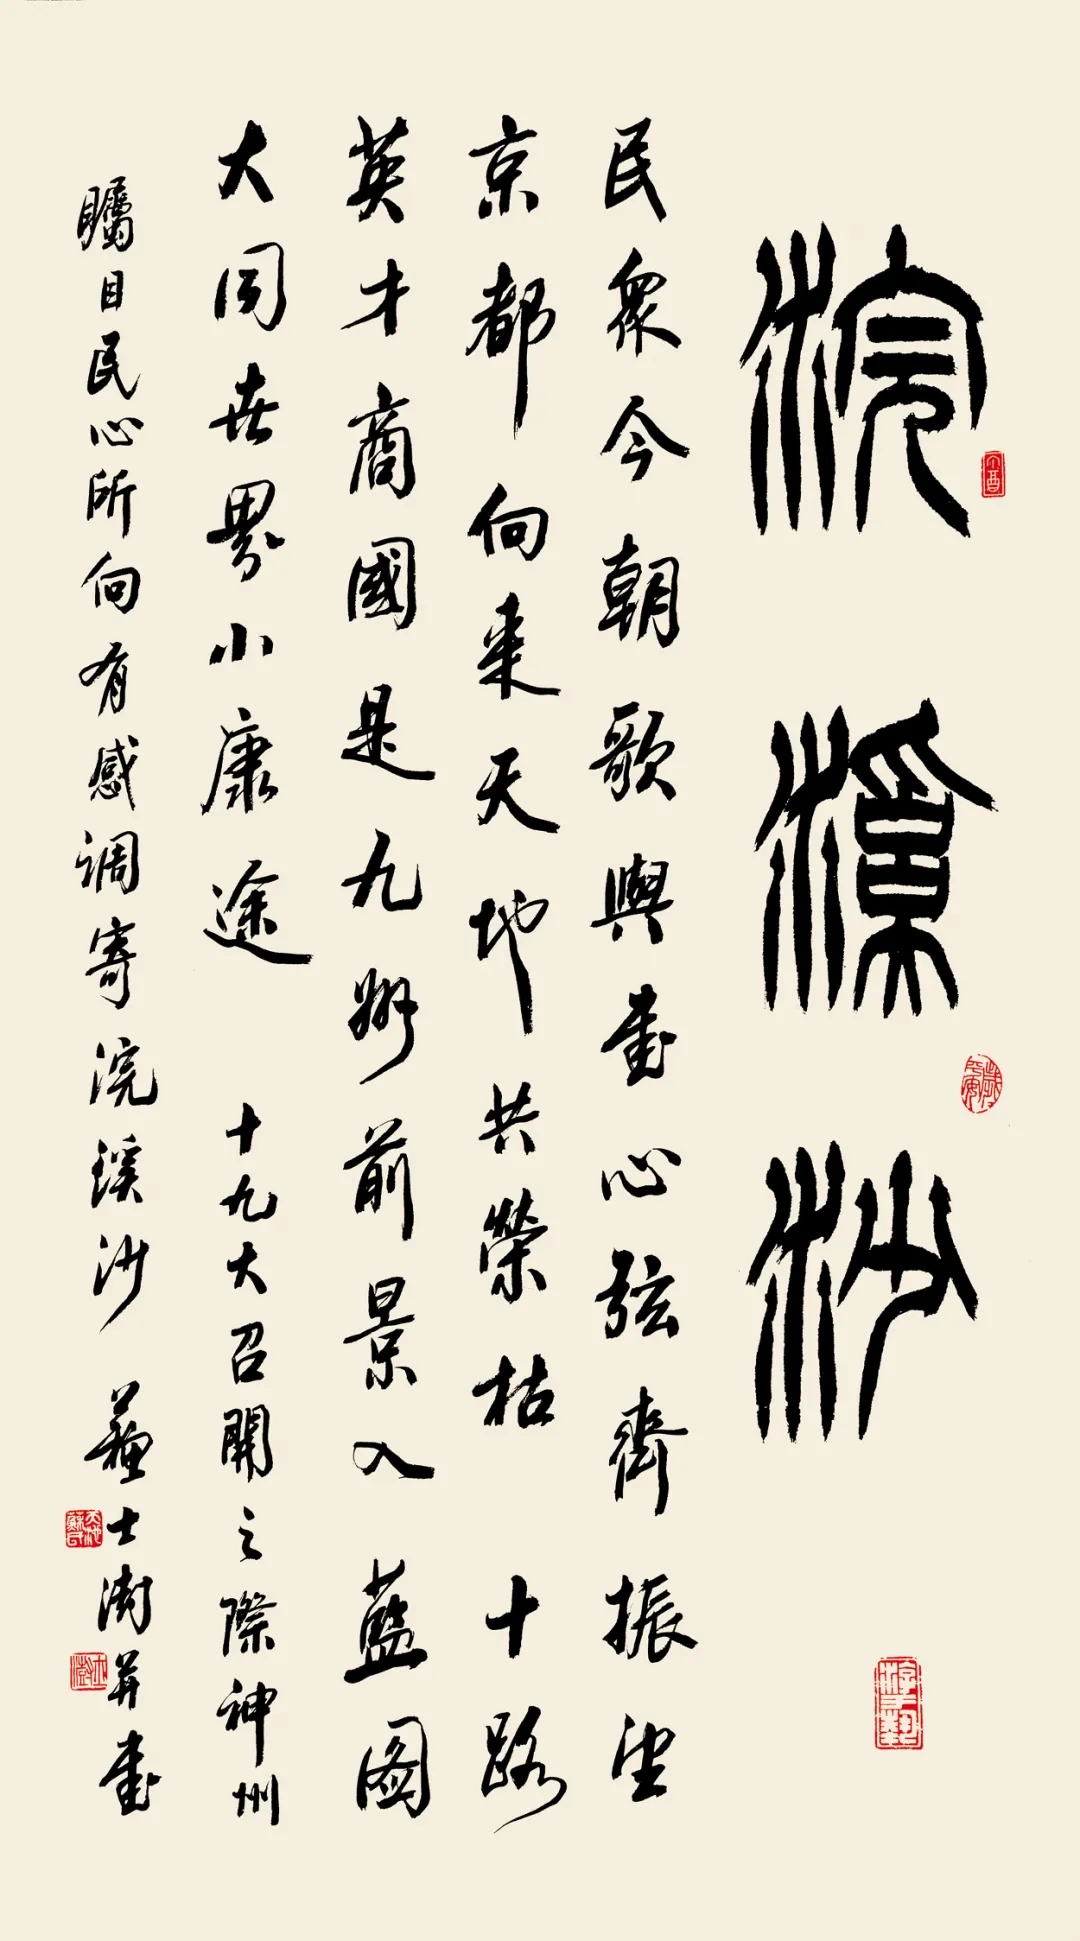 浣溪沙
民眾今朝歌與書心弦齊振望
京都向來天地共榮枯十路
英才商國是九州前景入藍圖
大同世界小康途 十九大召開之際神州
矚目民心所向有感調寄浣溪沙 蘇士澍并書
游于藝
士澍